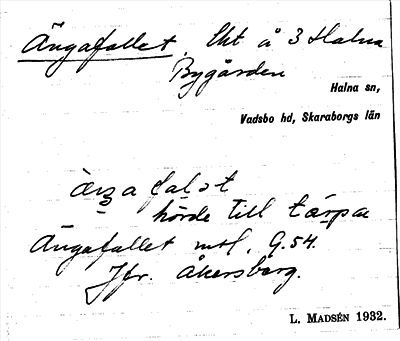 Ängafallet. Lht å 3 Halna
Bygården
Halna sn,
Vadsbo hd, Skaraborgs län
hörde till tårpa
Ängafallet mtl. G.54.
Jfr. Åkersberg.
L. MADSÉN 1932.